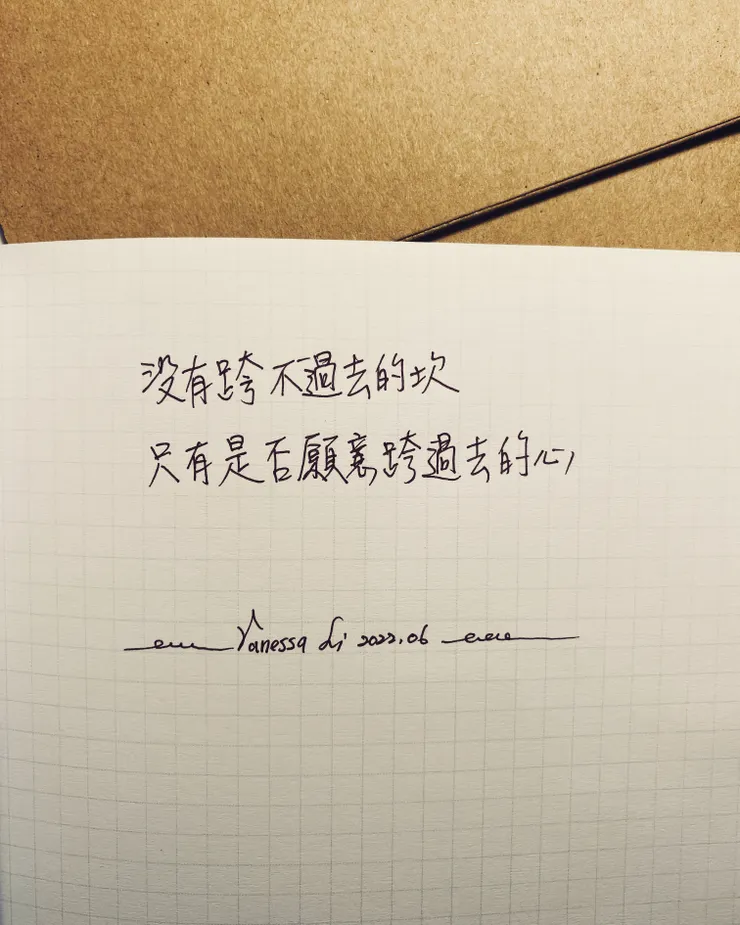 没有跨不過去的坎
只有是否願意跨過去的心
Vanessa Li 2022.06